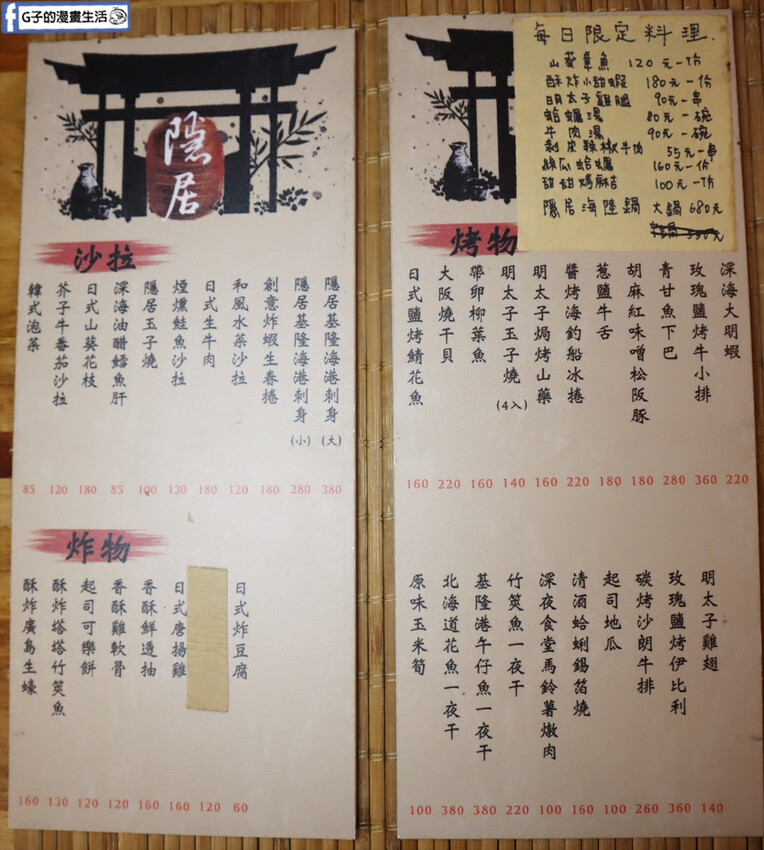 G子的漫畫生活
隱居
沙拉
隱居基隆海港刺身(大) 380
隱居基隆海港刺身(小) 280
創意炸蝦生春捲 180
和風水菜沙拉 120
日式生牛肉 180
煙燻鮭魚沙拉 130
隱居玉子燒 100
深海油醋鱈魚肝 85
日式山葵花枝 180
芥子牛番茄沙拉 120
韓式泡菜 85
炸物
日式炸豆腐 60
120
日式唐揚雞 160
香酥鮮透抽 160
香酥雞軟骨 120
起司可樂餅 120
酥炸塔塔竹筴魚 130
酥炸廣島生蠔 160
每日限定料理.
山葵章魚 120元一份
酥炸小甜蝦 180元一份
明太子雞腿 90元一串
蛤蠣湯 80元一碗
牛肉湯 90元一碗
剝皮辣椒牛肉 55元一串
絲瓜蛤蠣 160元一份
甜甜烤麻吉 100元一份
隱居海陸鍋 大鍋680元
烤物
深海大明蝦 220
玫瑰鹽烤牛小排 360
青甘魚下巴 280
胡麻紅味噌松阪豚 180
蔥鹽牛舌 180
醬烤海釣船冰捲 220
明太子焗烤山藥 160
明太子玉子燒(4入) 140
帶卵柳葉魚 160
大阪燒干貝 220
日式鹽烤鯖花魚 160
明太子雞翅 140
玫瑰鹽烤伊比利 360
碳烤沙朗牛排 260
起司地瓜 100
清酒蛤蜊錫箔燒 160
深夜食堂馬鈴薯燉肉 100
竹筴魚一夜干 220
基隆港午仔魚一夜干 380
北海道花魚一夜干 380
原味玉米筍 100